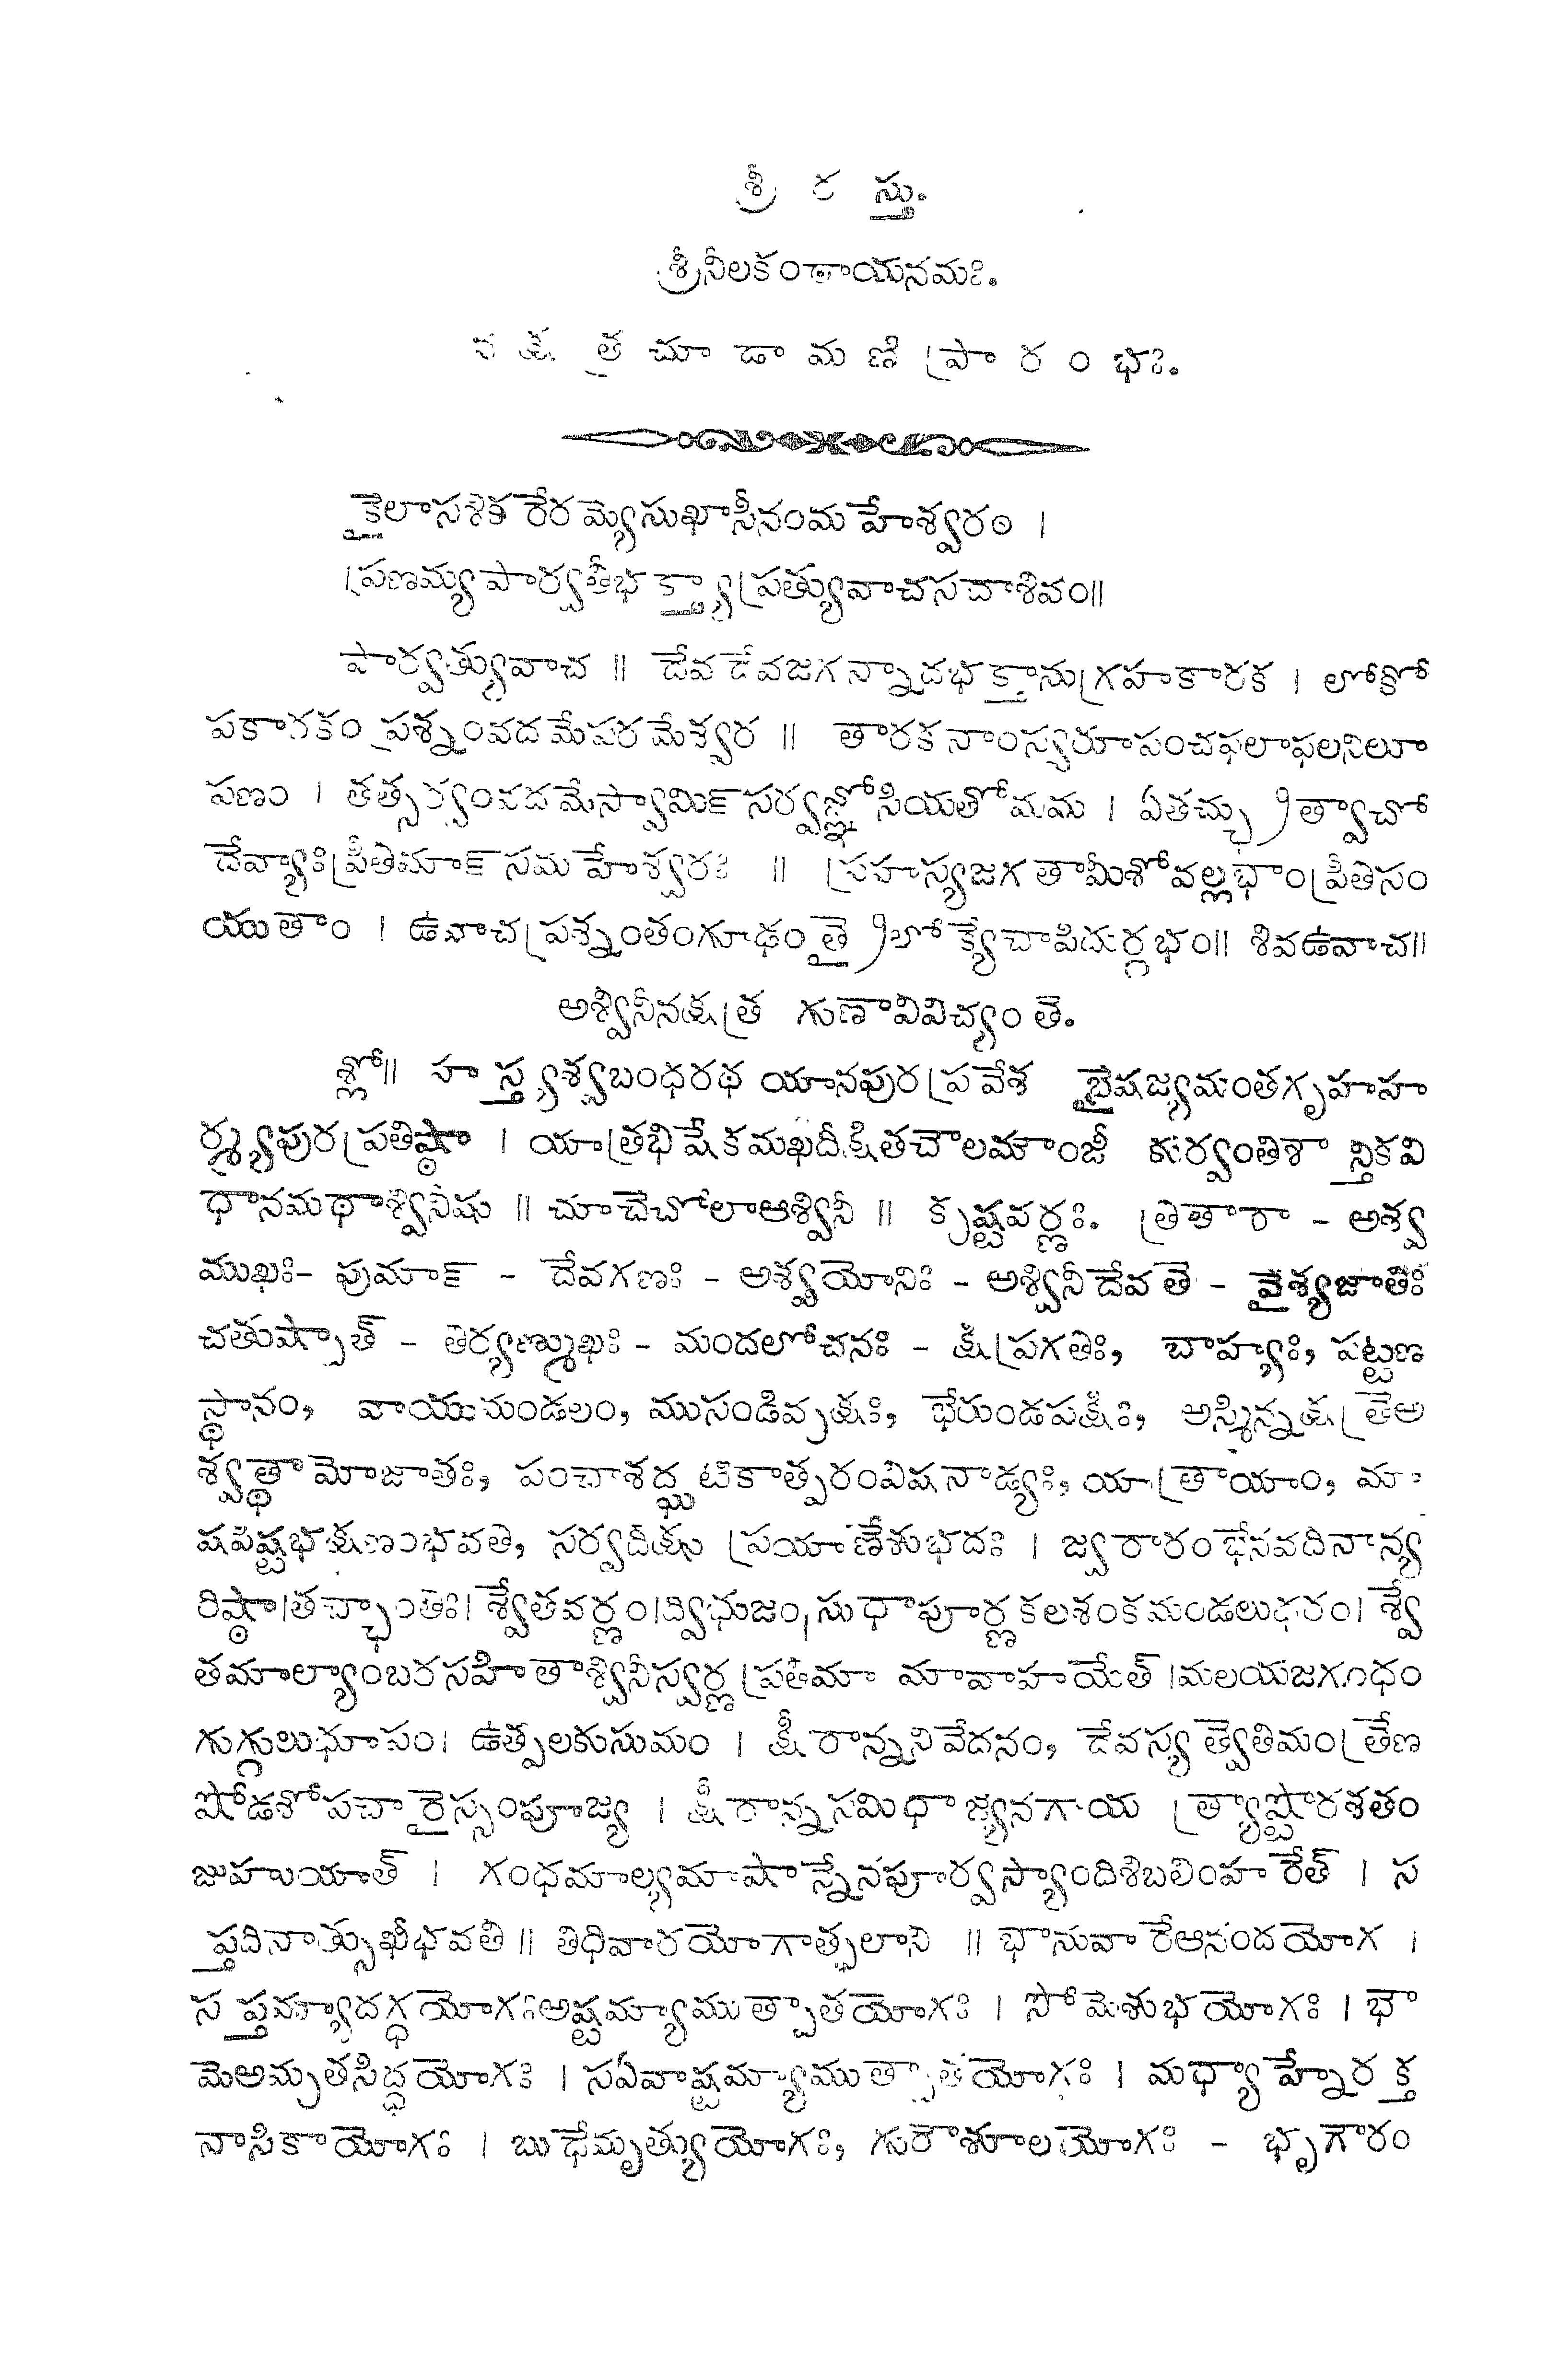 శ్రీ ర స్తు.
శ్రీనీలకంఠాయనమః.
న క్ష త్ర చూ డా మ ణి ప్రా ర ం భః.
కైలాసశిఖరేరమ్యేసుఖాసీనంమహేశ్వరం ।
ప్రణమ్యపార్వతీభక్త్యాప్రత్యువాచసదాశివం॥
పార్వత్యువాచ ॥ దేవదేవజగన్నాదభక్తానుగ్రహకారక । లోకో
పకారకం ప్రశ్నంవదమేపరమేశ్వర ॥ తారకనాంస్వరూపంచఫలాఫలనిరూ
పణం । తత్సర్వంవదమేస్వామిక్ సర్వజ్ఞోసియతోమమ । ఏతచ్ఛ్రుత్వావచో
దేవ్యాఃప్రీతిమాక్ సమహేశ్వరః ॥ ప్రహస్యజగతామీశోవల్లభాంప్రీతిసం
యుతాం । ఉవాచప్రశ్నంతంగూఢంత్రైలోక్యేచాపిదుర్లభం॥ శివఉవాచ॥
అశ్వినీనక్షత్ర గుణావివిచ్యం తె.
శ్లో॥ హస్త్యశ్వబంధరథ యానపురప్రవేశ భైషజ్యమంతగృహహ
ర్మ్యపురప్రతిష్ఠా । యాత్రభిషేకమఖదీక్షితచౌలమౌంజీ కుర్వంతిశాన్తికవి
ధానమథాశ్వినీషు ॥ చూచేచోలాఆశ్వినీ ॥ కృష్టవర్ణః. త్రితారా - అశ్వ
ముఖః- పుమాక్ - దేవగణః - అశ్వయోనిః - అశ్వినీదేవతె - వైశ్యజాతిః
చతుష్పాత్ - తిర్యఙ్ముఖః - మందలోచనః - క్షిప్రగతిః, చాహ్యః, పట్టణ
స్థానం, వాయుమండలం, ముసండివృక్షః, భేరుండపక్షీః, అస్మిన్నక్షత్రెఅ
శ్వత్థామోజాతః, పంచాశద్ఘటికాత్పరంవిషనాడ్యః, యాత్రాయాం, మా
షపిష్టభక్షణంభవతి, సర్వదీక్షు ప్రయాణేశుభదః । జ్వరారంభేనవదినాన్య
రిష్ఠా।తచ్ఛాంతిః। శ్వేతవర్ణం।ద్విభుజం,సుధాపూర్ణకలశంకమండలుధరం। శ్వే
తమాల్యాంబరసహితాశ్వినీస్వర్ణప్రతిమా మావాహయేత్ ।మలయజగంధం
గుగ్గులుధూపం। ఉత్పలకుసుమం । క్షీరాన్ననివేదనం, దేవస్య త్వెతిమంత్రేణ
షోడశోపచారైస్సంపూజ్య । క్షీరాన్నసమిధాజ్యనగాయ త్ర్యాష్టోరశతం
జుహుయాత్ । గంధమాల్యమాషాన్నేనపూర్వస్యాందిశిబలింహరేత్ । స
ప్తదినాత్సుఖీభవతి ॥ తిధివారయోగాత్ఫలాని ॥ భానువారేఆనందయోగ ।
సప్తమ్యాదగ్ధయోగఃఅష్టమ్యాముత్పాతయోగః । సోమేశుభయోగః । భౌ
మెఅమృతసిద్ధయోగః । సఏవాష్టమ్యాముత్పాతయోగః । మధ్యాహ్నేరక్త
నాసికాయోగః । బుధేమృత్యుయోగః, గురౌశూలయోగః - భృగౌరం